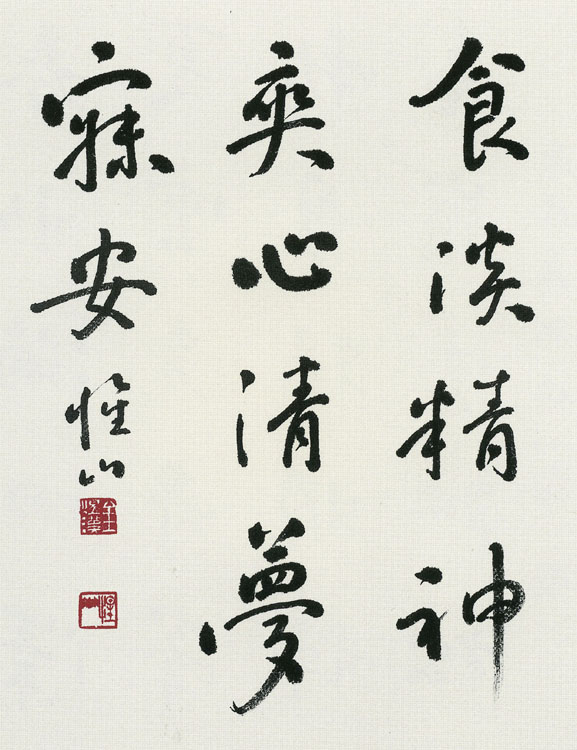 食淡精神
爽心清夢
寐安 惟山